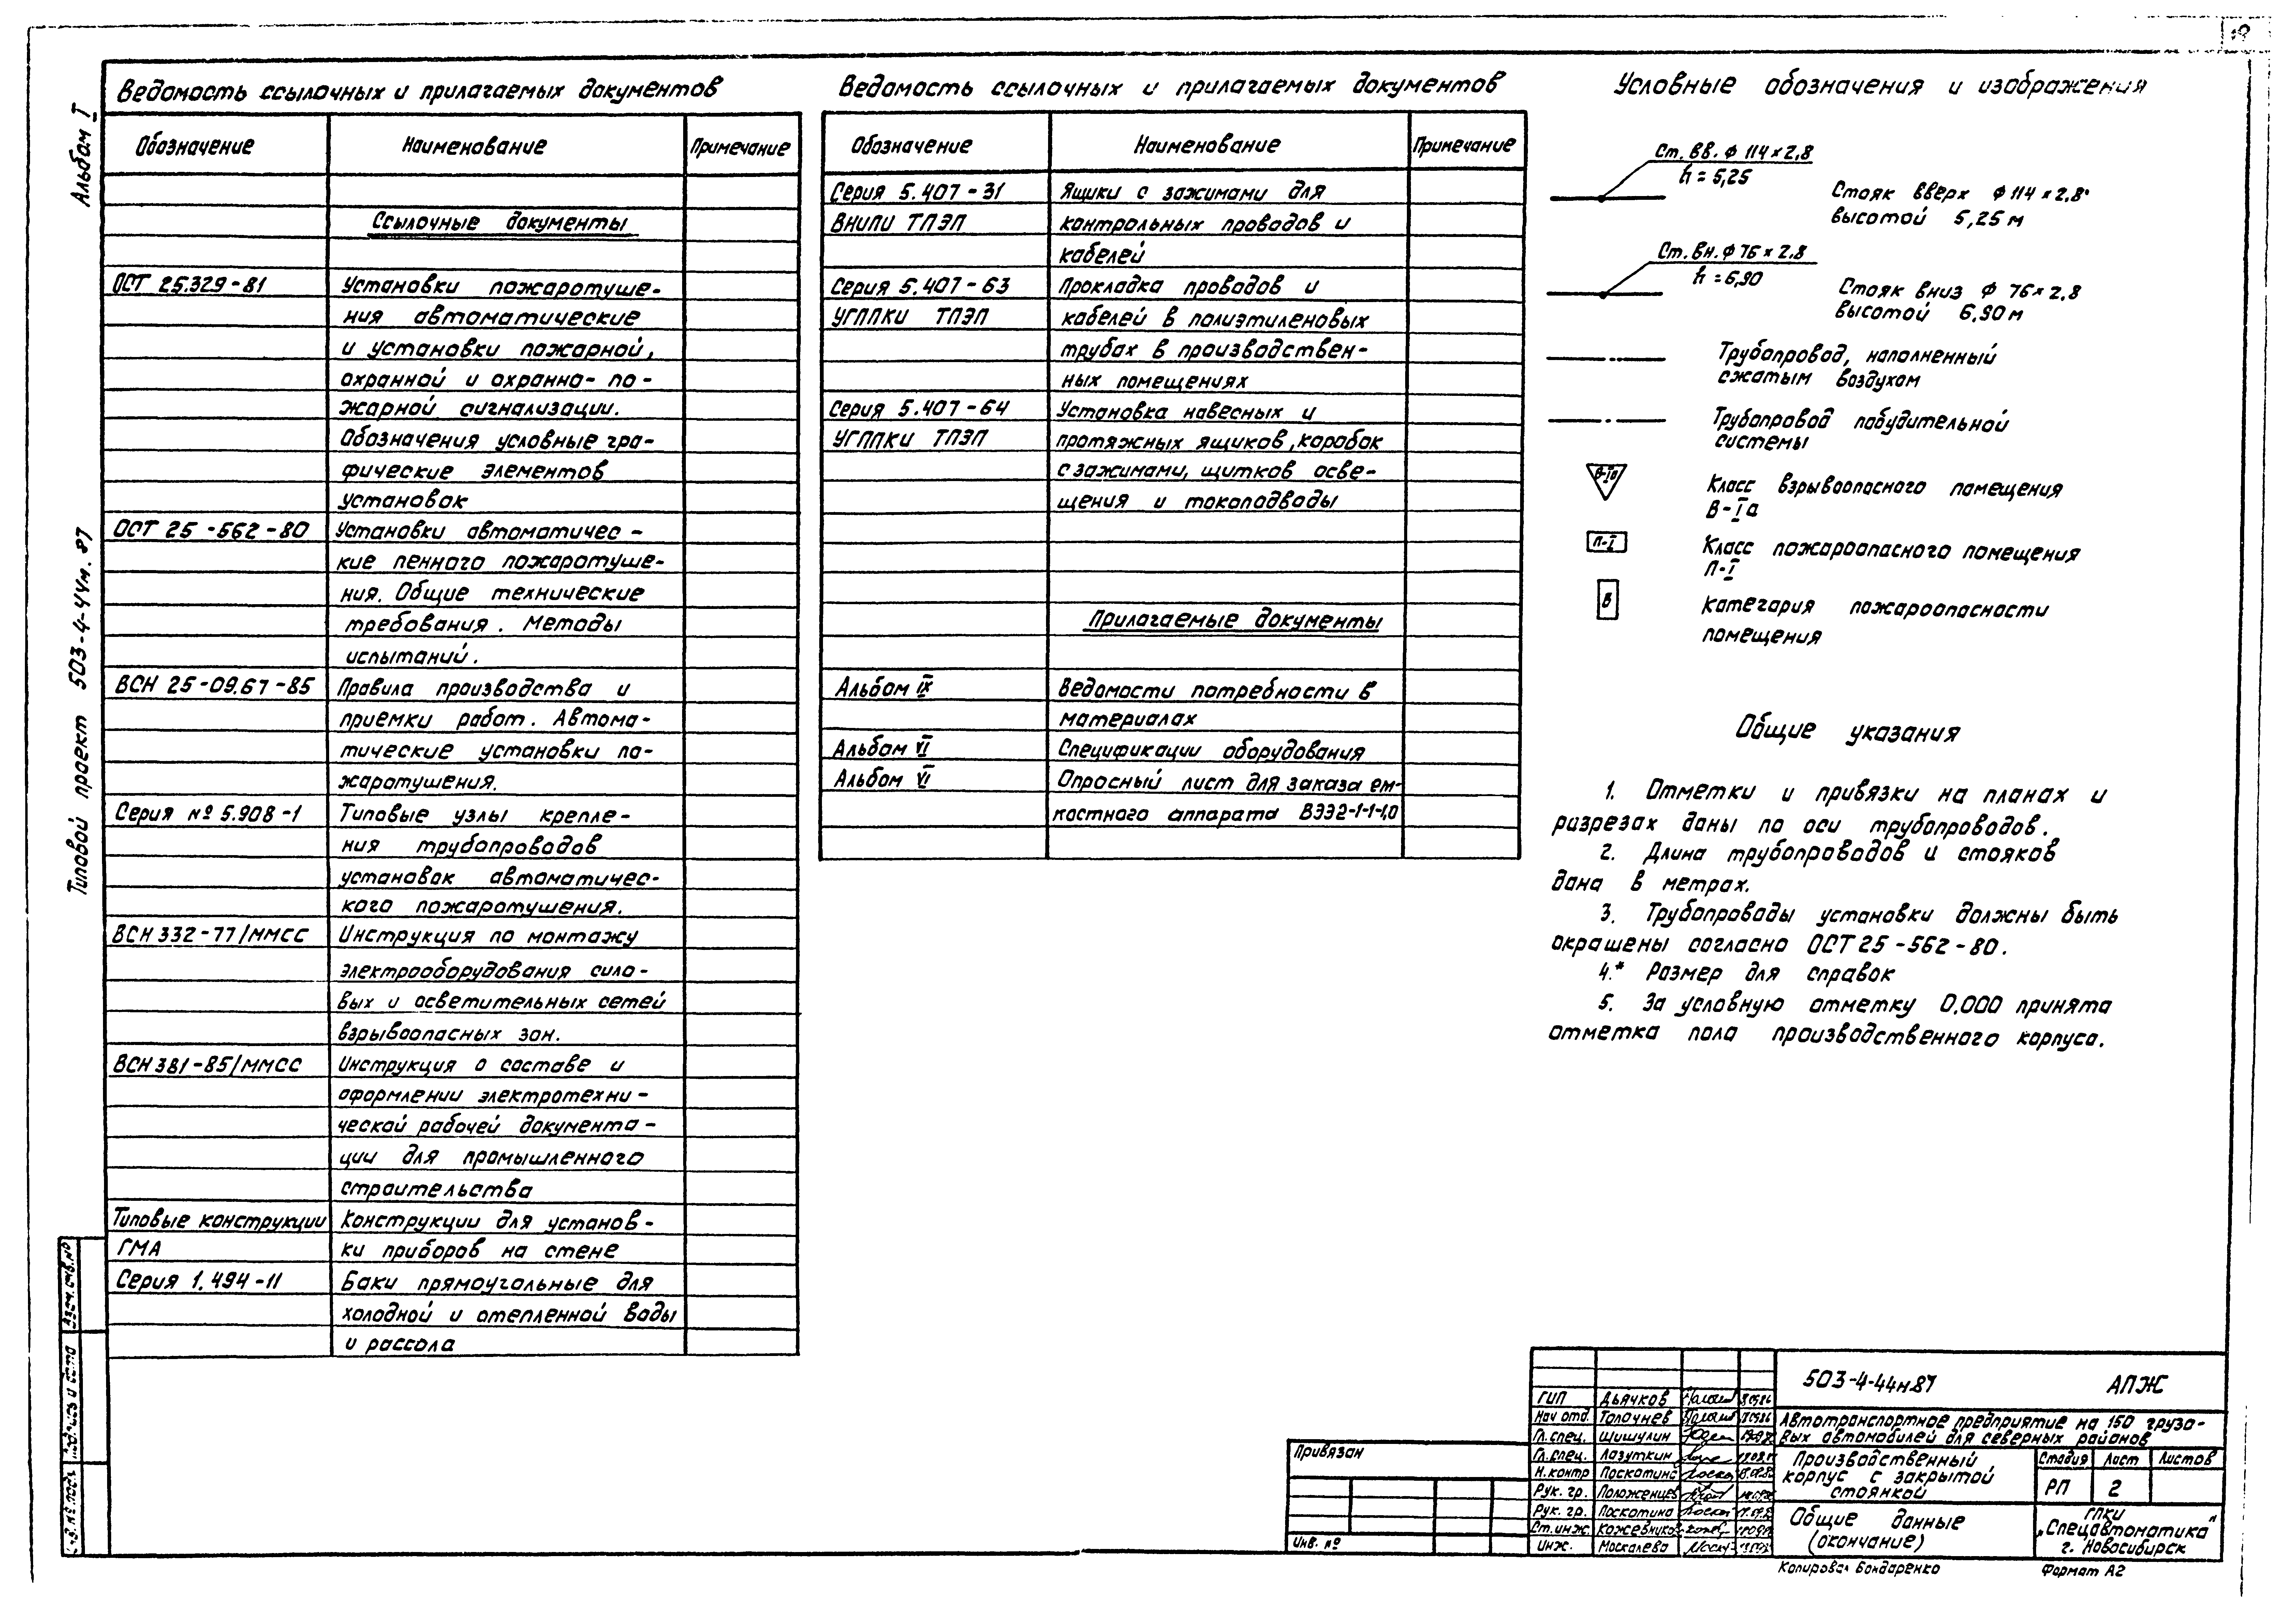 19
Альбом I
Типовой проект 503-4-44м.87
Ведомость ссылочных и прилагаемых документов
Обозначение Наименование Примечание
Ссылочные документы
ОСТ 25.329-81 Установки пожаротуше-
ния автоматические
и установки пожарной,
охранной и охранно-по-
жарной сигнализации.
Обозначения условные гра-
фические элементов
установок
ОСТ 25-562-80 Установки автоматичес-
кие пенного пожаротуше-
ния. Общие технические
требования. Методы
испытаний.
ВСН 25-09.67-85 Правила производства и
приемки работ. Автома-
тические установки по-
жаротушения.
Серия № 5.908-1 Типовые узлы крепле-
ния трубопроводов
установок автоматичес-
кого пожаротушения.
ВСН 332-77/ММСС Инструкция по монтажу
электрооборудования сило-
вых и осветительных сетей
взрывоопасных зон.
ВСН 381-85/ММСС Инструкция о составе и
оформлении электротехни-
ческой рабочей документа-
ции для промышленного
строительства
Типовые конструкции Конструкции для установ-
ГМА ки приборов на стене
Серия 1.494-11 Баки прямоугольные для
холодной и отепленной воды
и рассола
Ведомость ссылочных и прилагаемых документов
Обозначение Наименование Примечание
Серия 5.407-31 Ящики с зажимами для
ВНИПИ ТПЭП контрольных проводов и
кабелей
Серия 5.407-63 Прокладка проводов и
УГППКИ ТПЭП кабелей в полиэтиленовых
трубах в производствен-
ных помещениях
Серия 5.407-64 Установка навесных и
УГППКИ ТПЭП протяжных ящиков, коробок
с зажимами, щитков осве-
щения и токоподводы
Прилагаемые документы
Альбом IX Ведомости потребности в
материалах
Альбом VI Спецификации оборудования
Альбом VI Опросный лист для заказа ем-
костного аппарата ВЭЭ2-1-1-1,0
Условные обозначения и изображения
Ст. вв. ф 114×2,8
h = 5,25
Стояк вверх ф 114×2,8
высотой 5,25 м
Ст. вн. ф 76×2,8
h = 6,90
Стояк вниз ф 76×2,8
высотой 6,90 м
Трубопровод, наполненный
сжатым воздухом
Трубопровод побудительной
системы
В-Iа Класс взрывоопасного помещения
В-Iа
П-I Класс пожароопасного помещения
П-I
В Категория пожароопасности
помещения
Общие указания
1. Отметки и привязки на планах и
разрезах даны по оси трубопроводов.
2. Длина трубопроводов и стояков
дана в метрах.
3. Трубопроводы установки должны быть
окрашены согласно ОСТ 25-562-80.
4.* Размер для справок
5. За условную отметку 0,000 принята
отметка пола производственного корпуса.
Привязан
Инв. №
ГИП Дьячков
Нач отд. Толочнев
Гл. спец. Шишулин
Гл. спец. Лазуткин
Н. контр Поскотина
Рук. гр. Положенцев
Рук. гр. Поскотина
Ст. инж. Кожевников
Инж. Москалева
503-4-44м87 АПЖ
Автотранспортное предприятие на 150 грузо-
вых автомобилей для северных районов
Производственный
корпус с закрытой
стоянкой
Стадия Лист Листов
РП 2
Общие данные
(окончание)
ГПКИ
„Спецавтоматика"
г. Новосибирск
Копировал Бондаренко Формат А2
Взам. инв. №
Подпись и дата
Инв. № подл.